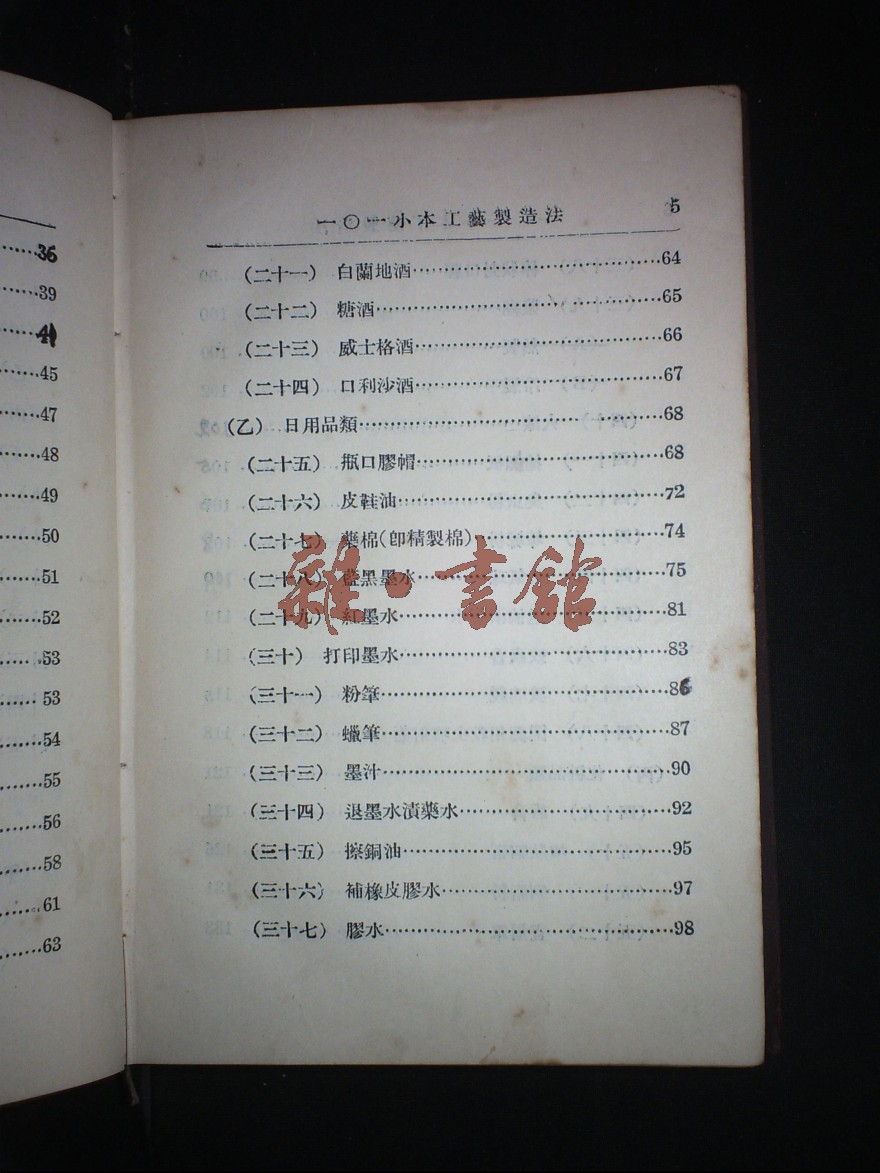 36
39
41
45
47
48
49
50
51
52
53
53
54
55
56
58
61
63
一〇一小本工藝製造法 5
(二十一) 白蘭地酒……………………64
(二十二) 糖酒……………………65
(二十三) 威士格酒……………………66
(二十四) 口利沙酒……………………67
(乙) 日用品類……………………68
(二十五) 瓶口膠帽……………………68
(二十六) 皮鞋油……………………72
(二十七) 藥棉(卽精製棉)……………………74
(二十八) 藍黑墨水……………………75
(二十九) 紅墨水……………………81
(三十) 打印墨水……………………83
(三十一) 粉筆……………………86
(三十二) 蠟筆……………………87
(三十三) 墨汁……………………90
(三十四) 退墨水漬藥水……………………92
(三十五) 擦銅油……………………95
(三十六) 補橡皮膠水……………………97
(三十七) 膠水……………………98
雜·書館